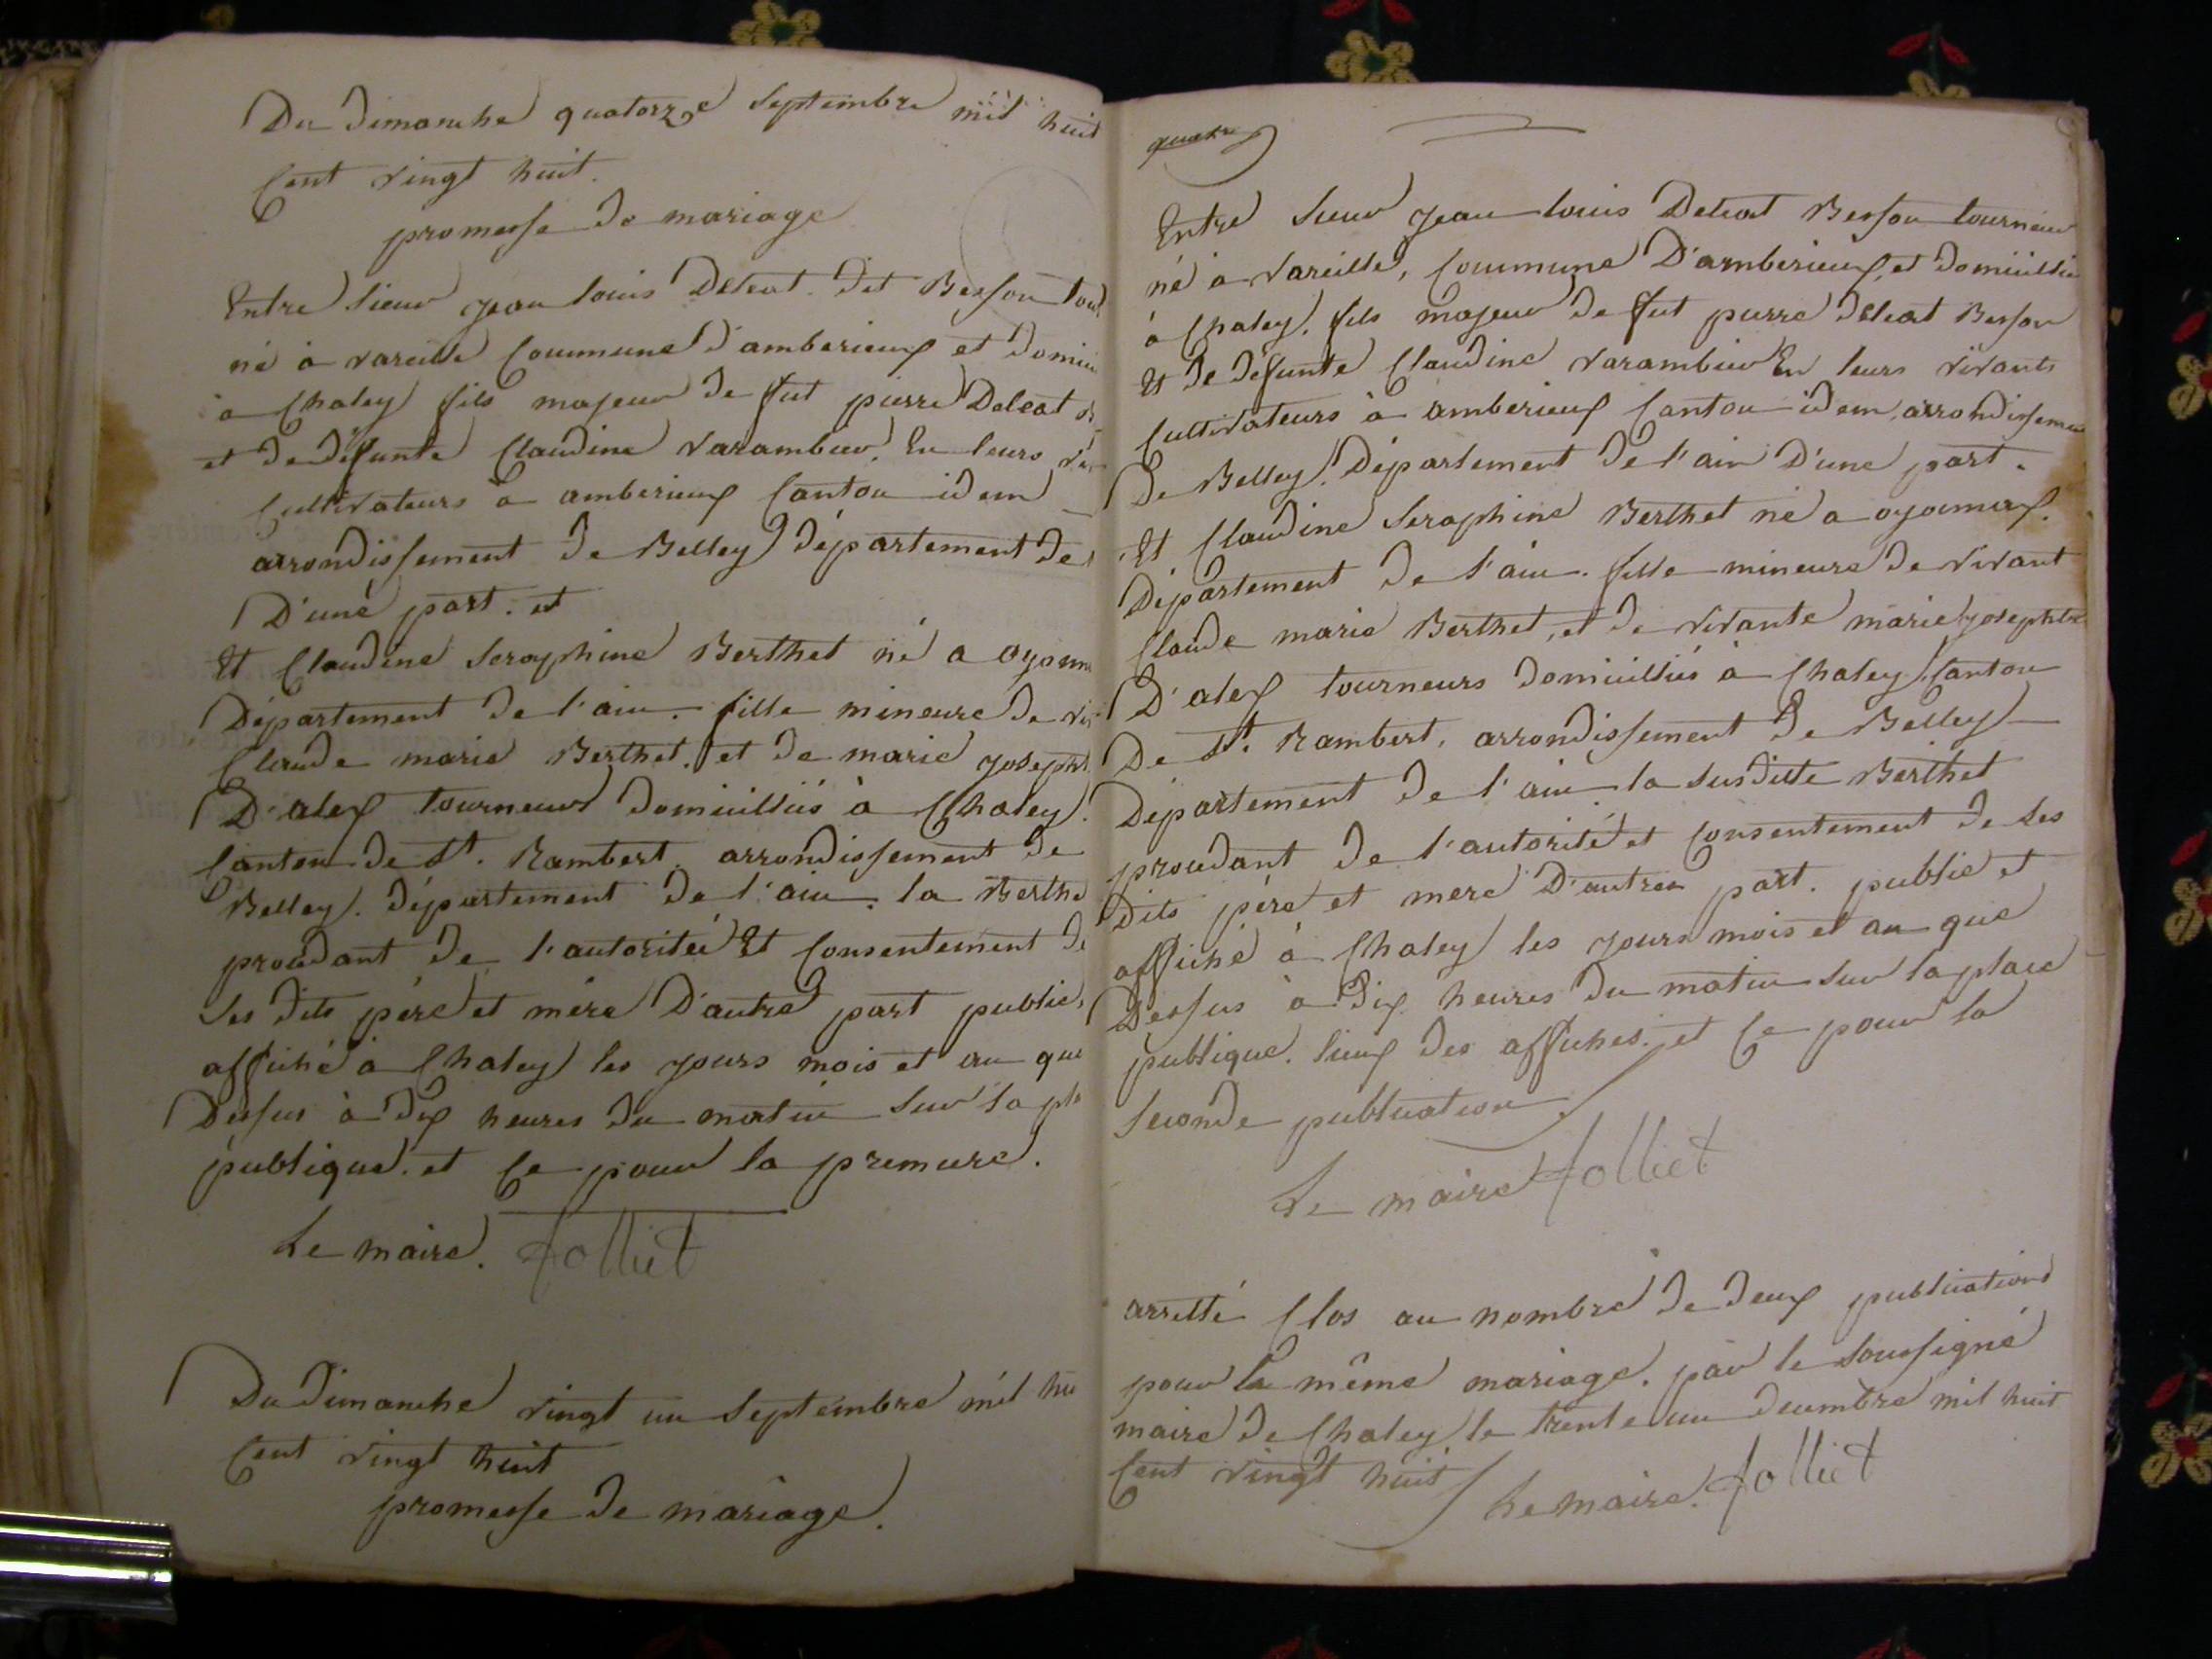 Du Dimanche quatorze Septembre mil huit
Cent vingt huit.
promesse de mariage
Entre Sieur jean louis Deleat dit Besson tou
né à vareille Commune d'amberieux et domici
a Chaley fils majeur de fut pierre Deleat
et de defunte Claudine varambier. En leurs viv
Cultivateurs à amberieux Canton idem
arrondissement de Belley département de
D'une part. et
Et Claudine Seraphine Berthet né a oyonn
Département de l'ain. fille mineure de viv
Claude marie Berthet. et de marie joseph
D'alex tourneurs domicilliés à Chaley.
Canton de St. Rambert. arrondissement de
Belley. département de l'ain. la Berthe
procédant de l'autoritéé Et Consentement de
Ses dits père et mère D'autre part public,
affiché à Chaley les jours mois et an que
Dessus à dix heures du matin Sur la pla
publique. et Ce pour la premiere.
Le maire. Jolliet
Du Dimanche vingt un Septembre mil hu
Cent vingt huit
promesse de mariage.
quatre
Entre Sieur jean louis Deleat Besson tourneur
né à vareille, Commune D'amberieux, et domicillié
à Chaley. fils majeur de fut pierre déleat Besson
Et de défunte Claudine varambier En leurs vivants
Cultivateurs à amberieux Canton idem, arrondissemen
De Belley. Département de l'ain D'une part.
Et Claudine Seraphine Berthet né a oyonnax.
Département de l'ain. fille mineure de vivant
Claude marie Berthet, et de vivante marie josephte
D'alex tourneurs domicilliés à Chaley Canton
De St. Rambert. arrondissement de Belley
Département de l'ain la Susditte Berthet
procédant de l'autorité et Consentement de Ses
Dits père et mere D'autre part. publié et
affiché à Chaley les jours mois et an que
Dessus à dix heures du matin Sur la place
publique. lieux des affiches. et Ce pour la
Seconde publication
Le maire Jolliet
arretté Clos au nombre de deux publications
pour le même mariage. par le Soussigné
maire de Chaley le trente un decembre mil huit
Cent vingt huit
Le maire. Jolliet